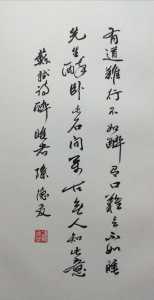 有道难行不如醉有口难言不如睡
先生醉卧此石间万古无人知此意
苏轼诗醉睡者陈德友